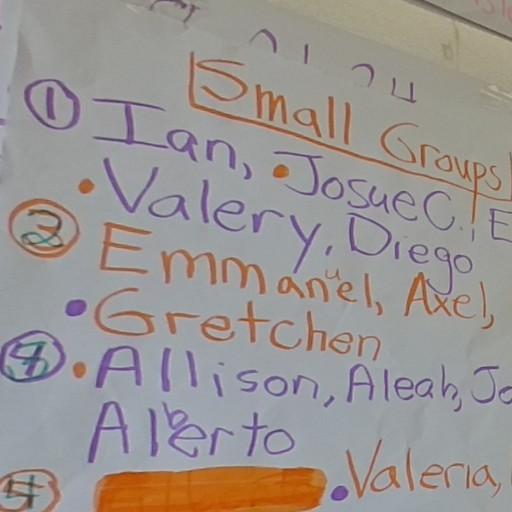 Small Groups
① Ian, •Josue C., E
•Valery, Diego
② Emmanuel, Axel,
•Gretchen
•Allison, Aleah, Jo
Alberto
•Valeria,